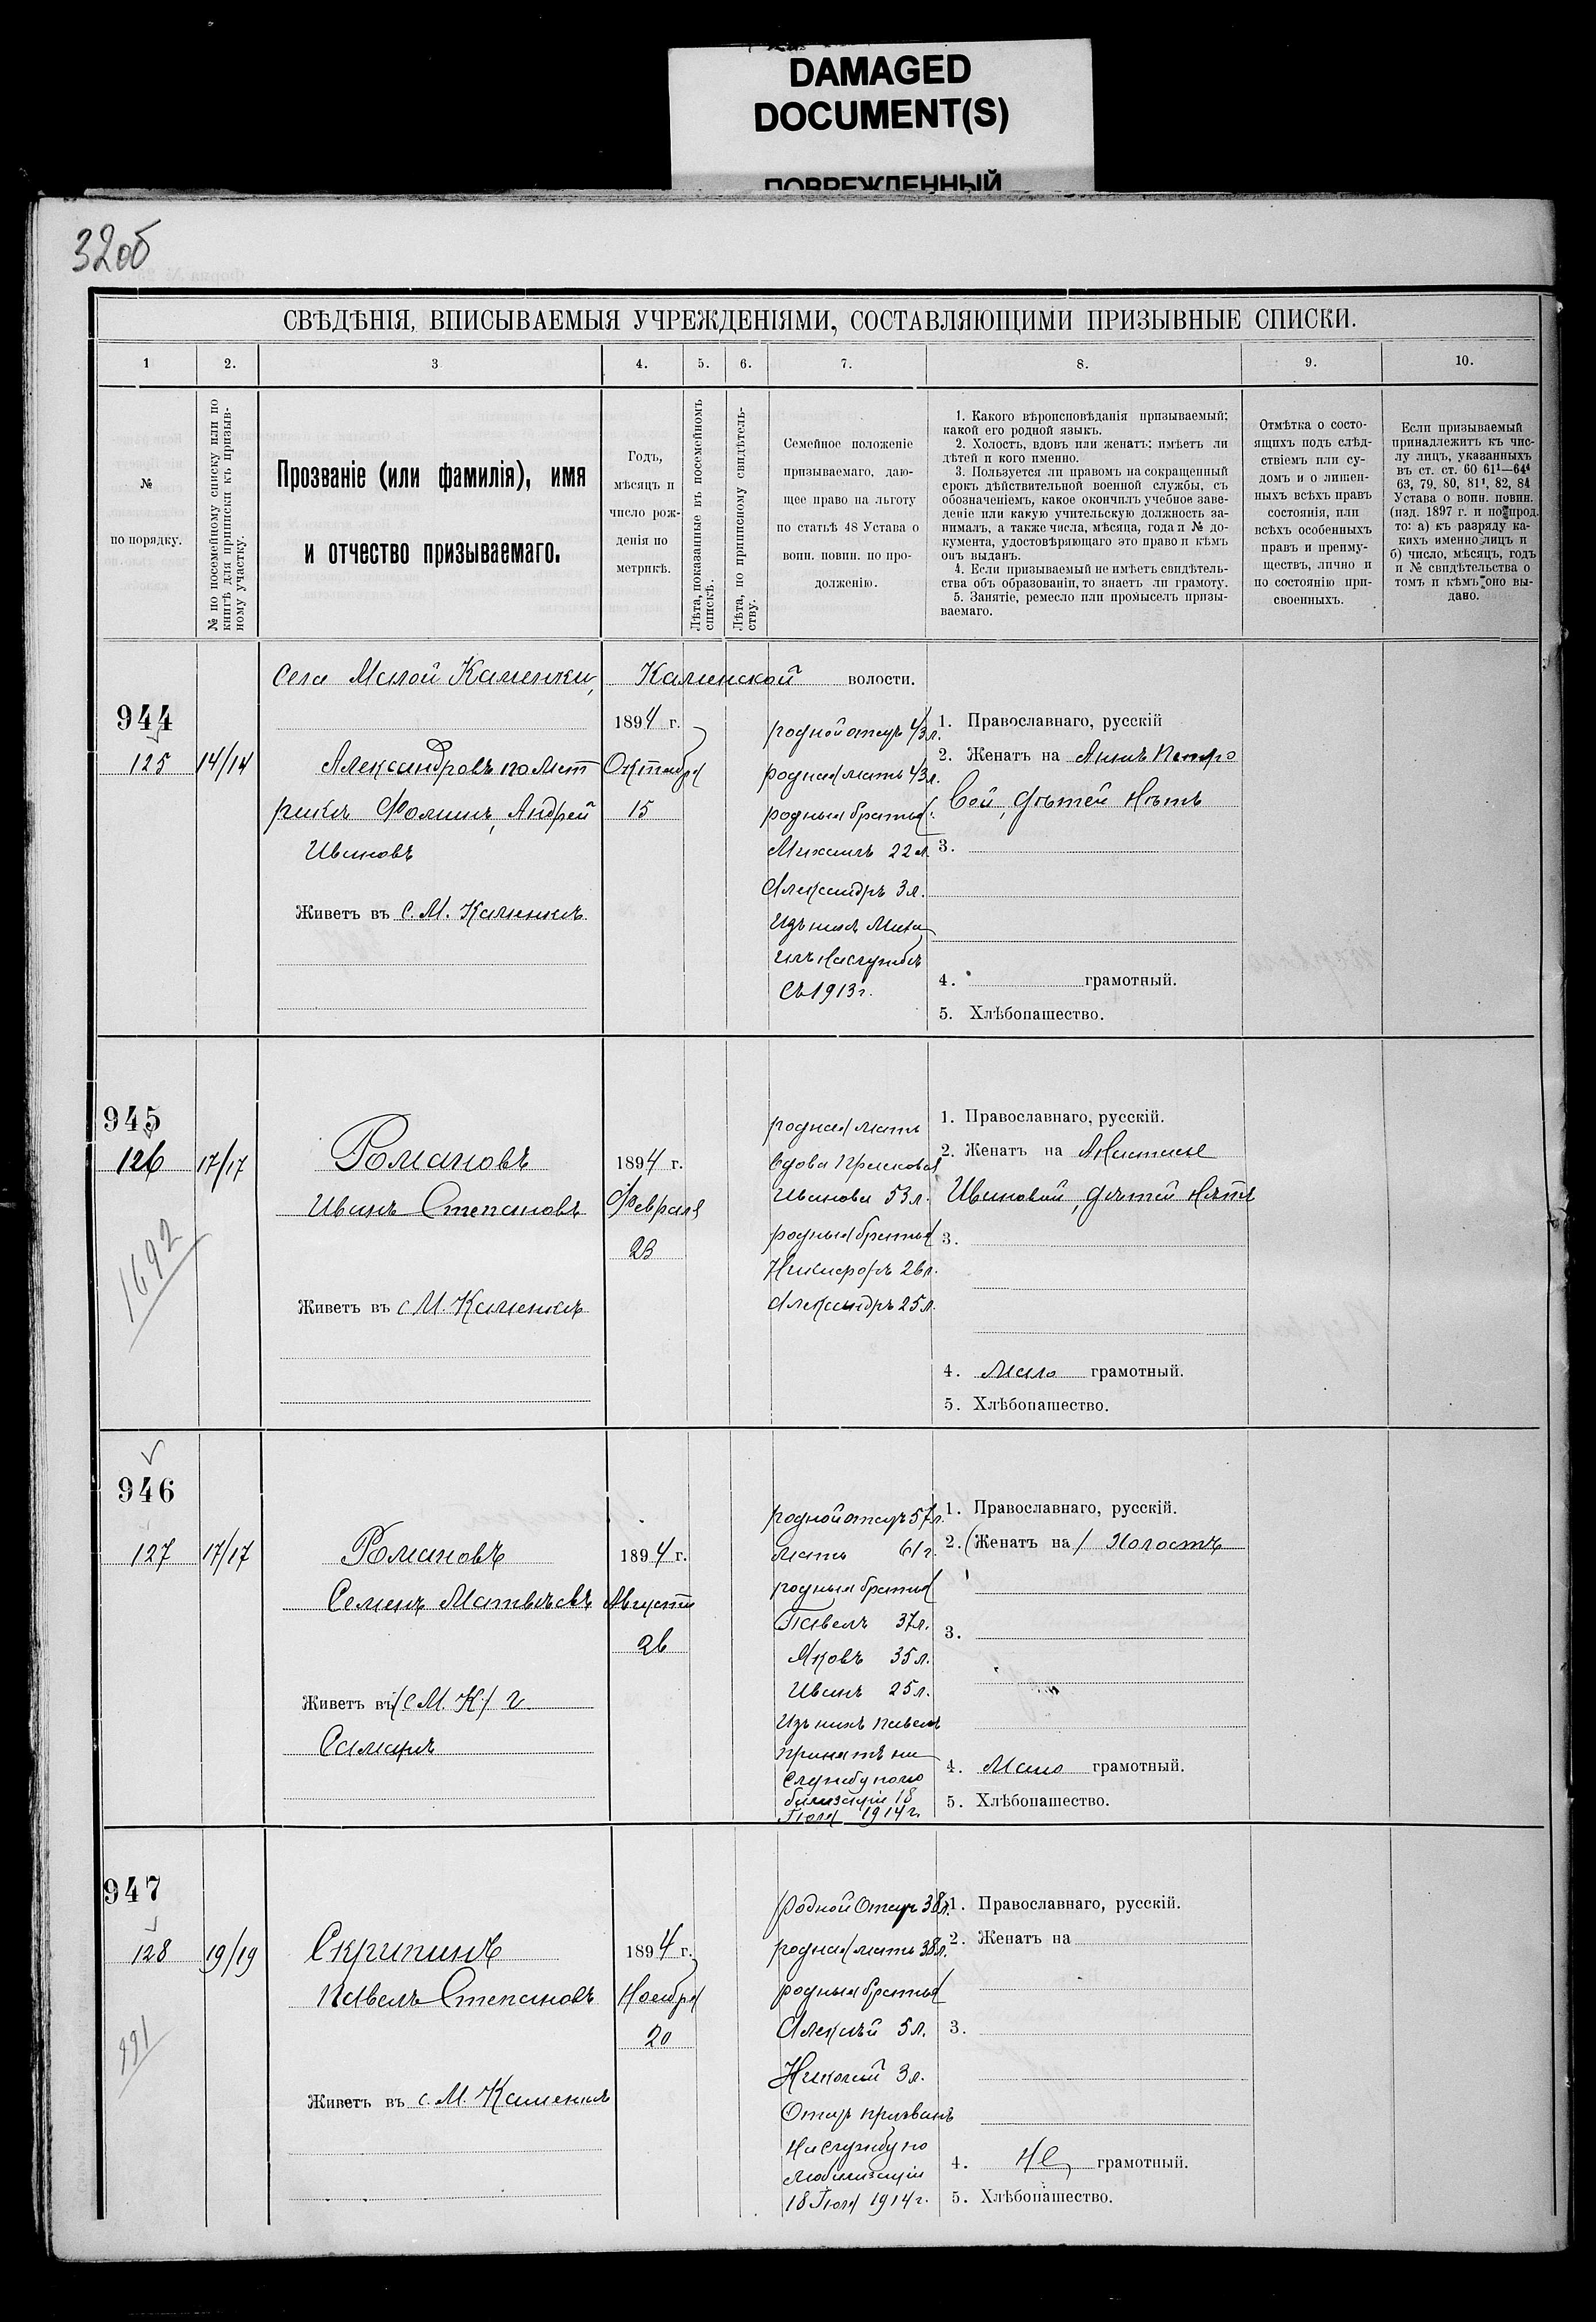 DAMAGED
DOCUMENT(S)
ПОВРЕЖДЕННЫЙ
32об
СВѢДѢНІЯ, ВПИСЫВАЕМЫЯ УЧРЕЖДЕНІЯМИ, СОСТАВЛЯЮЩИМИ ПРИЗЫВНЫЕ СПИСКИ.
1 2. 3 4. 5. 6. 7. 8. 9. 10.
№
по порядку.
№ по посемейному списку или по
книгѣ для приписки къ призыв-
ному участку.
Прозваніе (или фамилія), имя
и отчество призываемаго.
Годъ,
мѣсяцъ и
число рож-
денія по
метрикѣ.
Лѣта, показанные въ посемейномъ
спискѣ.
Лѣта, по приписному свидѣтель-
ству.
Семейное положеніе
призываемаго, даю-
щее право на льготу
по статьѣ 48 Устава о
воин. повин. по про-
долженію.
1. Какого вѣроисповѣданія призываемый;
какой его родной языкъ.
2. Холостъ, вдовъ или женатъ; имѣетъ ли
дѣтей и кого именно.
3. Пользуется ли правомъ на сокращенный
срокъ дѣйствительной военной службы, съ
обозначеніемъ, какое окончилъ учебное заве-
деніе или какую учительскую должность за-
нималъ, а также числа, мѣсяца, года и № до-
кумента, удостовѣряющаго это право и кѣмъ
онъ выданъ.
4. Если призываемый не имѣетъ свидѣтель-
ства объ образованіи, то знаетъ ли грамоту.
5. Занятіе, ремесло или промыселъ призы-
ваемаго.
Отмѣтка о состо-
ящихъ подъ слѣд-
ствіемъ или су-
домъ и о лишен-
ныхъ всѣхъ правъ
состоянія, или
всѣхъ особенныхъ
правъ и преиму-
ществъ, лично и
по состоянію при-
своенныхъ.
Если призываемый
принадлежитъ къ чис-
лу лицъ, указанныхъ
въ ст. ст. 60 61¹—64⁴
63, 79, 80, 81¹, 82, 84
Устава о воин. повин.
(изд. 1897 г. и по прод.
то: а) къ разряду ка-
кихъ именно лицъ и
б) число, мѣсяцъ, годъ
и № свидѣтельства о
томъ и кѣмъ оно вы-
дано.
Села Малой Каменки, Каменской волости.
944
125 14/14
Александровъ по мет
рикѣ Фоминъ, Андрей
Ивановъ
Живетъ въ с. М. Каменкѣ
1894 г.
Октября
15
родной отецъ 43 л.
родная мать 43 л.
родныя братья:
Михаилъ 22 л.
Александръ 3 л.
Изъ нихъ Миха
илъ на службѣ
съ 1913 г.
1. Православнаго, русскій
2. Женатъ на Аннѣ Петро
вой, дѣтей нѣтъ
3.
4. грамотный.
5. Хлѣбопашество.
945
126 17/17
1692
Романовъ
Иванъ Степановъ
Живетъ въ с М. Каменкѣ
1894 г.
Февраля
23
родная мать
вдова Прасковья
Иванова 53 л.
родныя братья
Никифоръ 26 л.
Александръ 25 л.
1. Православнаго, русскій.
2. Женатъ на Анастасіе
Ивановой, дѣтей нѣтъ
3.
4. Мало грамотный.
5. Хлѣбопашество.
946
127 17/17
Романовъ
Семенъ Матвѣевъ
Живетъ въ (с М. К) г
Самарѣ
1894 г.
Августа
26
родной отецъ 57 л.
мать 61 г.
родныя братья
Павелъ 37 л.
Яковъ 35 л.
Иванъ 25 л.
Изъ нихъ Павелъ
принятъ на
службу по мо
билизаціи 18
Іюля 1914 г.
1. Православнаго, русскій.
2. (Женатъ на) Холостъ
3.
4. Мало грамотный.
5. Хлѣбопашество.
947
128 19/19
991
Скрипинъ
Павелъ Степановъ
Живетъ въ с. М. Каменкѣ
1894 г.
Ноября
20
Родной Отецъ 38 л.
родная мать 38 л.
родныя братья
Алексѣй 5 л.
Николай 3 л.
Отецъ призванъ
на службу по
мобилизаціи
18 Іюля 1914 г.
1. Православнаго, русскій.
2. Женатъ на
3.
4. Не грамотный.
5. Хлѣбопашество.